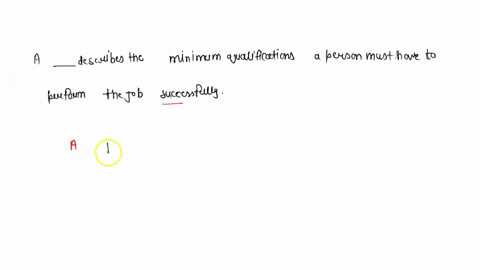 A ___ describes the minimum qualifications a person must have to
perform the job successfully.
A